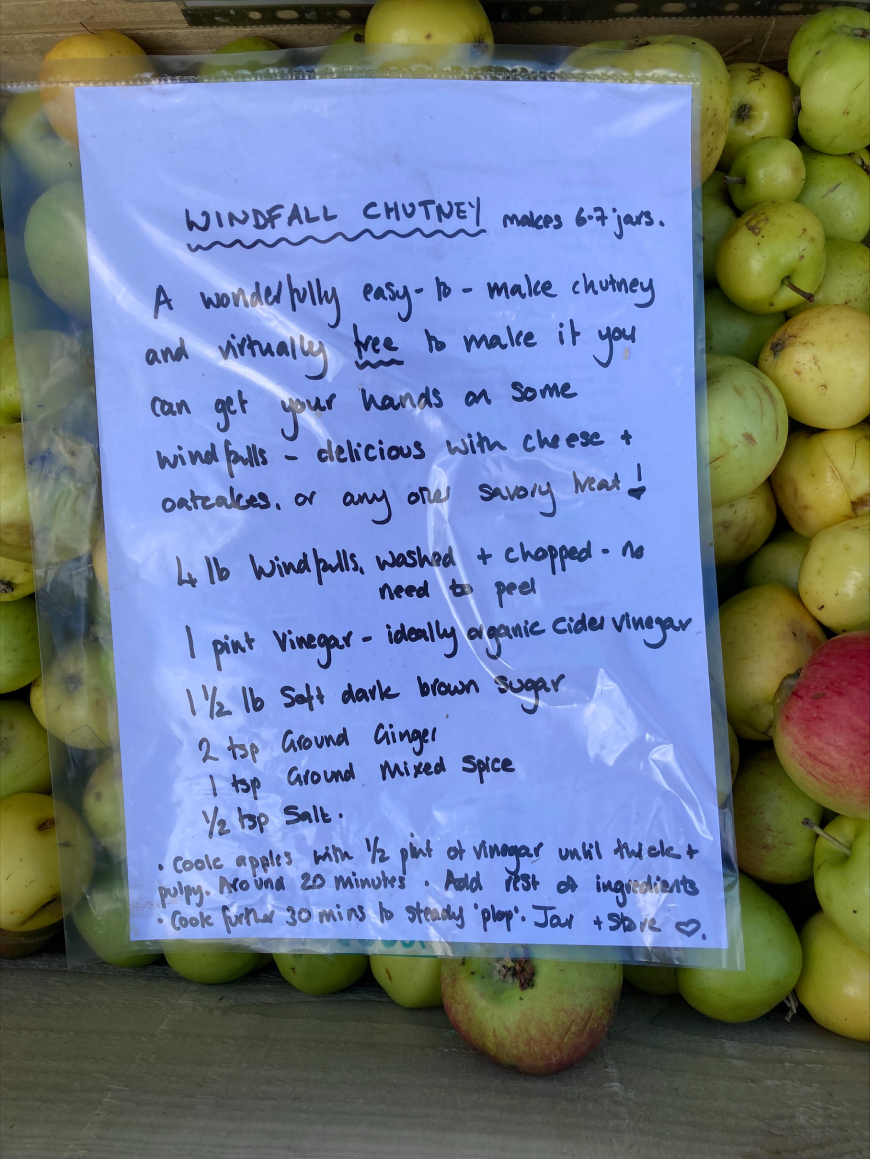 WINDFALL CHUTNEY makes 6-7 jars.
A wonderfully easy-to-make chutney
and virtually free to make if you
can get your hands on some
windfalls - delicious with cheese +
oatcakes, or any other savory treat!
4 lb Windfalls, washed + chopped - no
need to peel
1 pint Vinegar - ideally organic cider vinegar
1 1/2 lb Soft dark brown sugar
2 tsp Ground Ginger
1 tsp Ground Mixed Spice
1/2 tsp Salt.
• Cook apples with 1/2 pint of vinegar until thick +
pulpy. Around 20 minutes • Add rest of ingredients
• Cook further 30 mins to steady 'plop'. Jar + Store ♡.